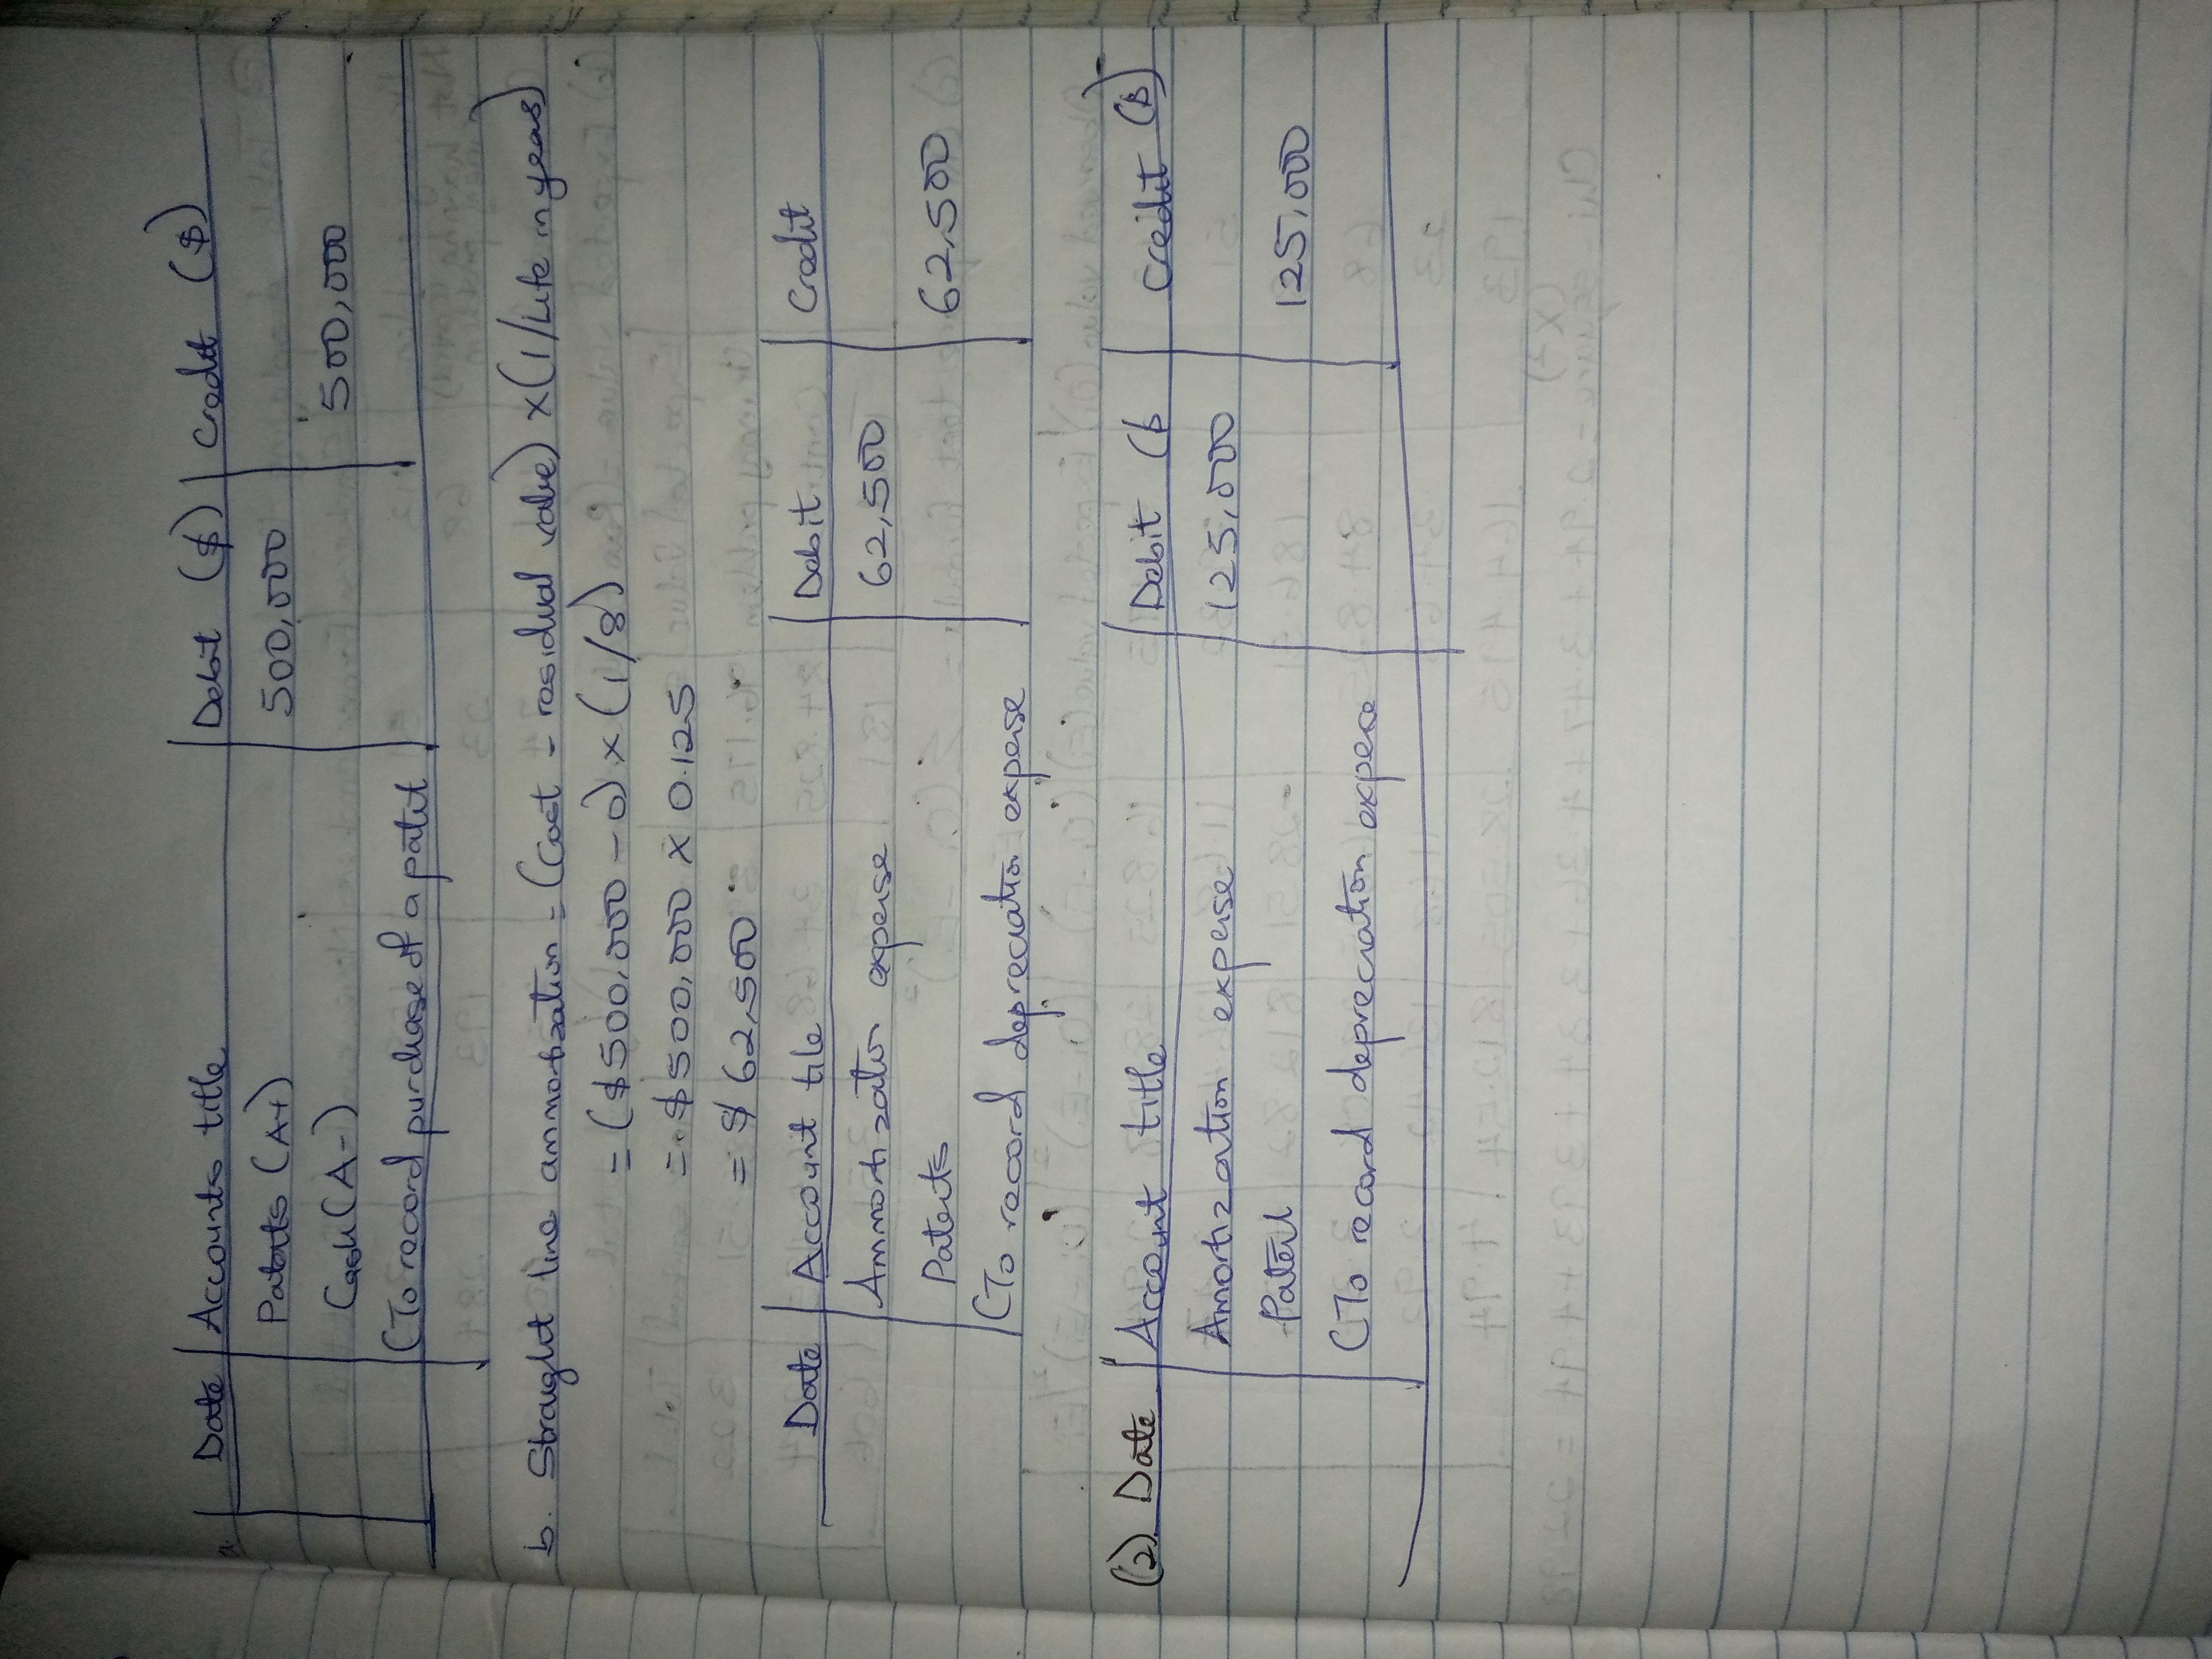 a. Date Accounts title Debit ($) Credit ($)
Patents (A+) 500,000
Cash (A-) 500,000
(To record purchase of a patent
b. Straight line ammortization = (Cost - residual value) x (1/Life in years)
= ($500,000 - 0) x (1/8)
= $500,000 x 0.125
= $ 62,500
Date Account tile Debit Credit
Ammortization expense 62,500
Patents 62,500
(To record depreciation expense
(2). Date Account title Debit ($ Credit ($)
Amortization expense 125,000
Patent 125,000
(To record depreciation expence